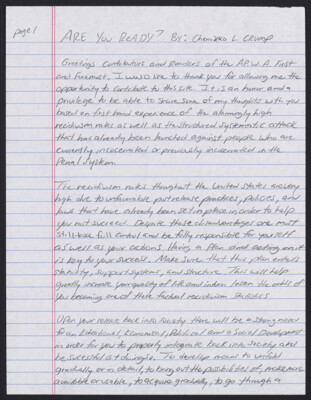 page 1
ARE YOU READY? BY: Chemiako L Crump
Greetings Contributors and Readers of the A.P.W.A. First
and Foremost, I would like to thank you for allowing me the
opportunity to contribute to this site. It is an honor and a
privilege to be able to share some of my thoughts with you
based on first hand experience of the alarmingly high
recidivism rates as well as the structured systematic attack
that has already been launched against people who are
currently incarcerated or previously incarcerated in the
Penal System.
The recidivism rates throughout the United States are very
high due to unfavorable post release practices, Policies, and
laws that have already been set in place in order to help
you not succeed. Despite these disadvantages one must
still take full control and be fully responsible for yourself
as well as your actions. Having a Plan and acting on it
is key to your success. Make sure that this plan entails
stability, support systems, and structure. This will help
greatly increase your quality of life and in turn lessen the odds of
you becoming one of these tacked recidivism statistics
Upon your release back into Society there will be a strong need
for an Educational, Economical, Political and a Social Development
in order for you to properly integrate back into society and
be successful at doing so. To develop means to unfold
gradually or in detail, to bring out the possibilities of, make more
available or usable, to acquire gradually, to go through a